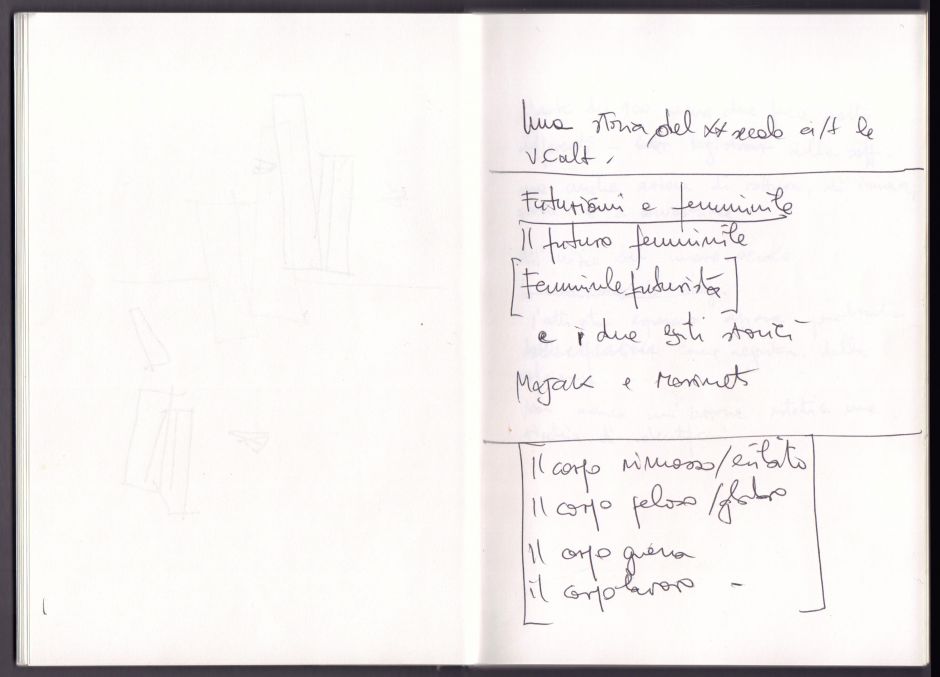 Una storia del XX secolo a/t le
v calt.
Futurismi e femminile
Il futuro femminile
[Femminile futurista]
e i due esiti storici
Majak e Marinet
Il corpo rimosso/esibito
Il corpo peloso/glabro
Il corpo guerra
il corpo lavoro -